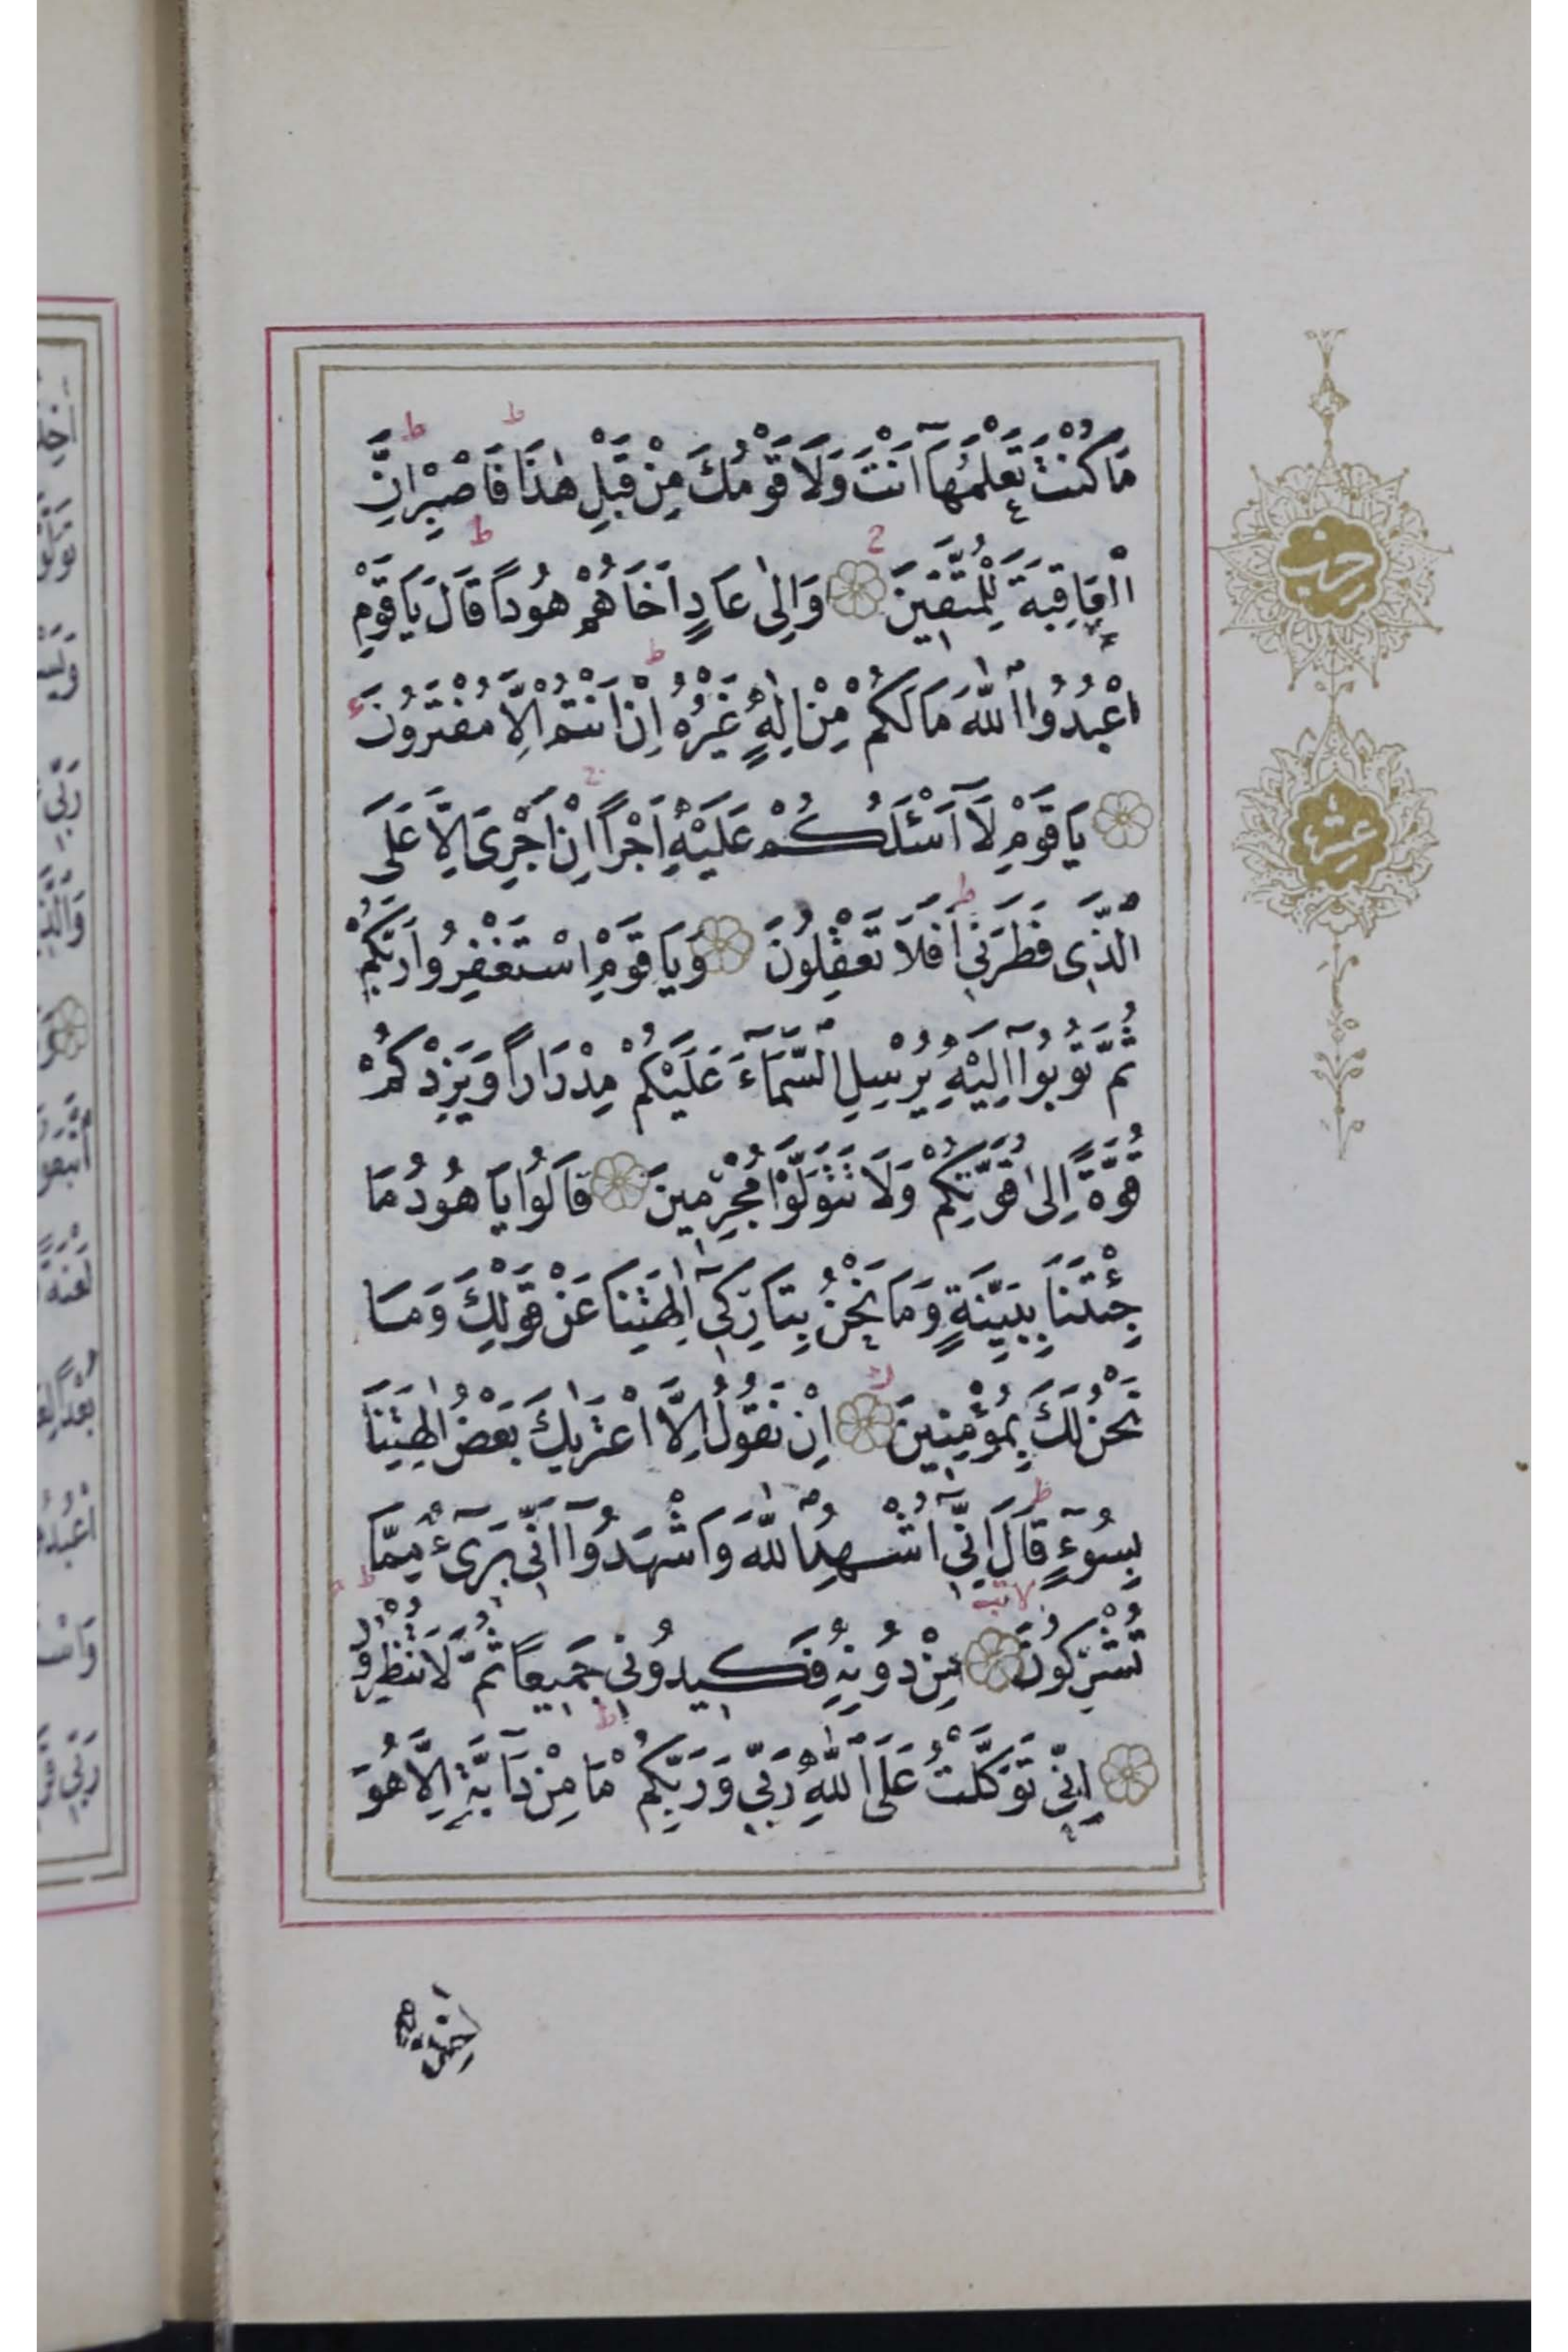 مَا كُنْتَ تَعْلَمُهَآ اَنْتَ وَلَا قَوْمُكَ مِنْ قَبْلِ هٰذَا فَاصْبِرْ اِنَّ
الْعَاقِبَةَ لِلْمُتَّقٖينَ وَاِلٰى عَادٍ اَخَاهُمْ هُودًا قَالَ يَا قَوْمِ
اعْبُدُوا اللّٰهَ مَا لَكُمْ مِنْ اِلٰهٍ غَيْرُهُ اِنْ اَنْتُمْ اِلَّا مُفْتَرُونَ
يَا قَوْمِ لَآ اَسْـَٔلُكُمْ عَلَيْهِ اَجْرًا اِنْ اَجْرِىَ اِلَّا عَلَى
الَّذٖى فَطَرَنٖى اَفَلَا تَعْقِلُونَ وَيَا قَوْمِ اسْتَغْفِرُوا رَبَّكُمْ
ثُمَّ تُوبُوآ اِلَيْهِ يُرْسِلِ السَّمَآءَ عَلَيْكُمْ مِدْرَارًا وَيَزِدْكُمْ
قُوَّةً اِلٰى قُوَّتِكُمْ وَلَا تَتَوَلَّوْا مُجْرِمٖينَ قَالُوا يَا هُودُ مَا
جِئْتَنَا بِبَيِّنَةٍ وَمَا نَحْنُ بِتَارِكٖٓى اٰلِهَتِنَا عَنْ قَوْلِكَ وَمَا
نَحْنُ لَكَ بِمُؤْمِنٖينَ اِنْ نَقُولُ اِلَّا اعْتَرٰيكَ بَعْضُ اٰلِهَتِنَا
بِسُوٓءٍ قَالَ اِنّٖٓى اُشْهِدُ اللّٰهَ وَاشْهَدُوآ اَنّٖى بَرٖٓىءٌ مِمَّا
تُشْرِكُونَ مِنْ دُونِهٖ فَكٖيدُونٖى جَمٖيعًا ثُمَّ لَا تُنْظِرُونِ
اِنّٖى تَوَكَّلْتُ عَلَى اللّٰهِ رَبّٖى وَرَبِّكُمْ مَا مِنْ دَآبَّةٍ اِلَّا هُوَ
حزب
عشر